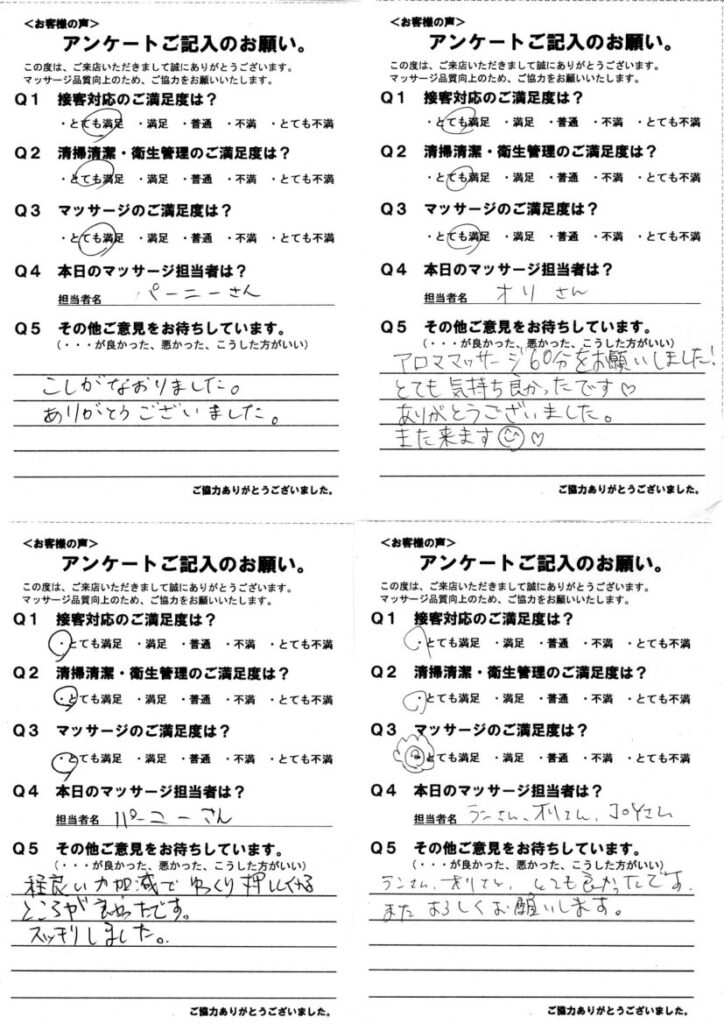 <お客様の声>
アンケートご記入のお願い。
この度は、ご来店いただきまして誠にありがとうございます。
マッサージ品質向上のため、ご協力をお願いいたします。
Q1 接客対応のご満足度は？
・とても満足 ・満足 ・普通 ・不満 ・とても不満
Q2 清掃清潔・衛生管理のご満足度は？
・とても満足 ・満足 ・普通 ・不満 ・とても不満
Q3 マッサージのご満足度は？
・とても満足 ・満足 ・普通 ・不満 ・とても不満
Q4 本日のマッサージ担当者は？
担当者名 パーニーさん
Q5 その他ご意見をお待ちしています。
(・・・が良かった、悪かった、こうした方がいい)
こしがなおりました。
ありがとうございました。
ご協力ありがとうございました。
<お客様の声>
アンケートご記入のお願い。
この度は、ご来店いただきまして誠にありがとうございます。
マッサージ品質向上のため、ご協力をお願いいたします。
Q1 接客対応のご満足度は？
・とても満足 ・満足 ・普通 ・不満 ・とても不満
Q2 清掃清潔・衛生管理のご満足度は？
・とても満足 ・満足 ・普通 ・不満 ・とても不満
Q3 マッサージのご満足度は？
・とても満足 ・満足 ・普通 ・不満 ・とても不満
Q4 本日のマッサージ担当者は？
担当者名 オリさん
Q5 その他ご意見をお待ちしています。
(・・・が良かった、悪かった、こうした方がいい)
アロママッサージ60分をお願いしました!
とても気持ち良かったです♡
ありがとうございました。
また来ます☺♡
ご協力ありがとうございました。
<お客様の声>
アンケートご記入のお願い。
この度は、ご来店いただきまして誠にありがとうございます。
マッサージ品質向上のため、ご協力をお願いいたします。
Q1 接客対応のご満足度は？
・とても満足 ・満足 ・普通 ・不満 ・とても不満
Q2 清掃清潔・衛生管理のご満足度は？
・とても満足 ・満足 ・普通 ・不満 ・とても不満
Q3 マッサージのご満足度は？
・とても満足 ・満足 ・普通 ・不満 ・とても不満
Q4 本日のマッサージ担当者は？
担当者名 パーニーさん
Q5 その他ご意見をお待ちしています。
(・・・が良かった、悪かった、こうした方がいい)
程良い力加減でゆっくり押し
ところが良かったです。
スッキリしました。
ご協力ありがとうございました。
<お客様の声>
アンケートご記入のお願い。
この度は、ご来店いただきまして誠にありがとうございます。
マッサージ品質向上のため、ご協力をお願いいたします。
Q1 接客対応のご満足度は？
・とても満足 ・満足 ・普通 ・不満 ・とても不満
Q2 清掃清潔・衛生管理のご満足度は？
・とても満足 ・満足 ・普通 ・不満 ・とても不満
Q3 マッサージのご満足度は？
・とても満足 ・満足 ・普通 ・不満 ・とても不満
Q4 本日のマッサージ担当者は？
担当者名 ランさん、オリさん、JOYさん
Q5 その他ご意見をお待ちしています。
(・・・が良かった、悪かった、こうした方がいい)
ランさん、オリさん、とても良かったです。
またよろしくお願いします。
ご協力ありがとうございました。